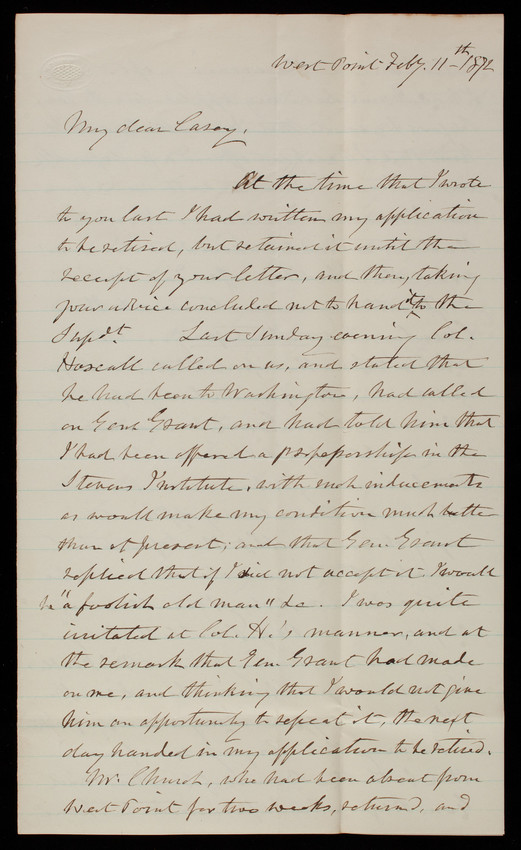 West Point Feby. 11th 1872
My dear Casey,
At the time that I wrote
to you last I had written my application
to be retired, but retained it until the
receipt of your letter, and then, taking
your advice concluded not to hand it to the
Supdt. Last Sunday evening Col.
Hascall called on us, and stated that
he had been to Washington, had called
on Genl Grant, and had told him that
I had been offered a professorship in the
Stevens Institute, with such inducements
as would make my condition much better
than at present; and that Gen. Grant
replied that if I did not accept it I would
be "a foolish old man" &c. I was quite
irritated at Col. H.'s manner, and at
the remark that Gen. Grant had made
on me, and thinking that I would not give
him an opportunity to repeat it, the next
day handed in my application to be retired.
Mr. Church, who had been absent from
West Point for two weeks, returned, and